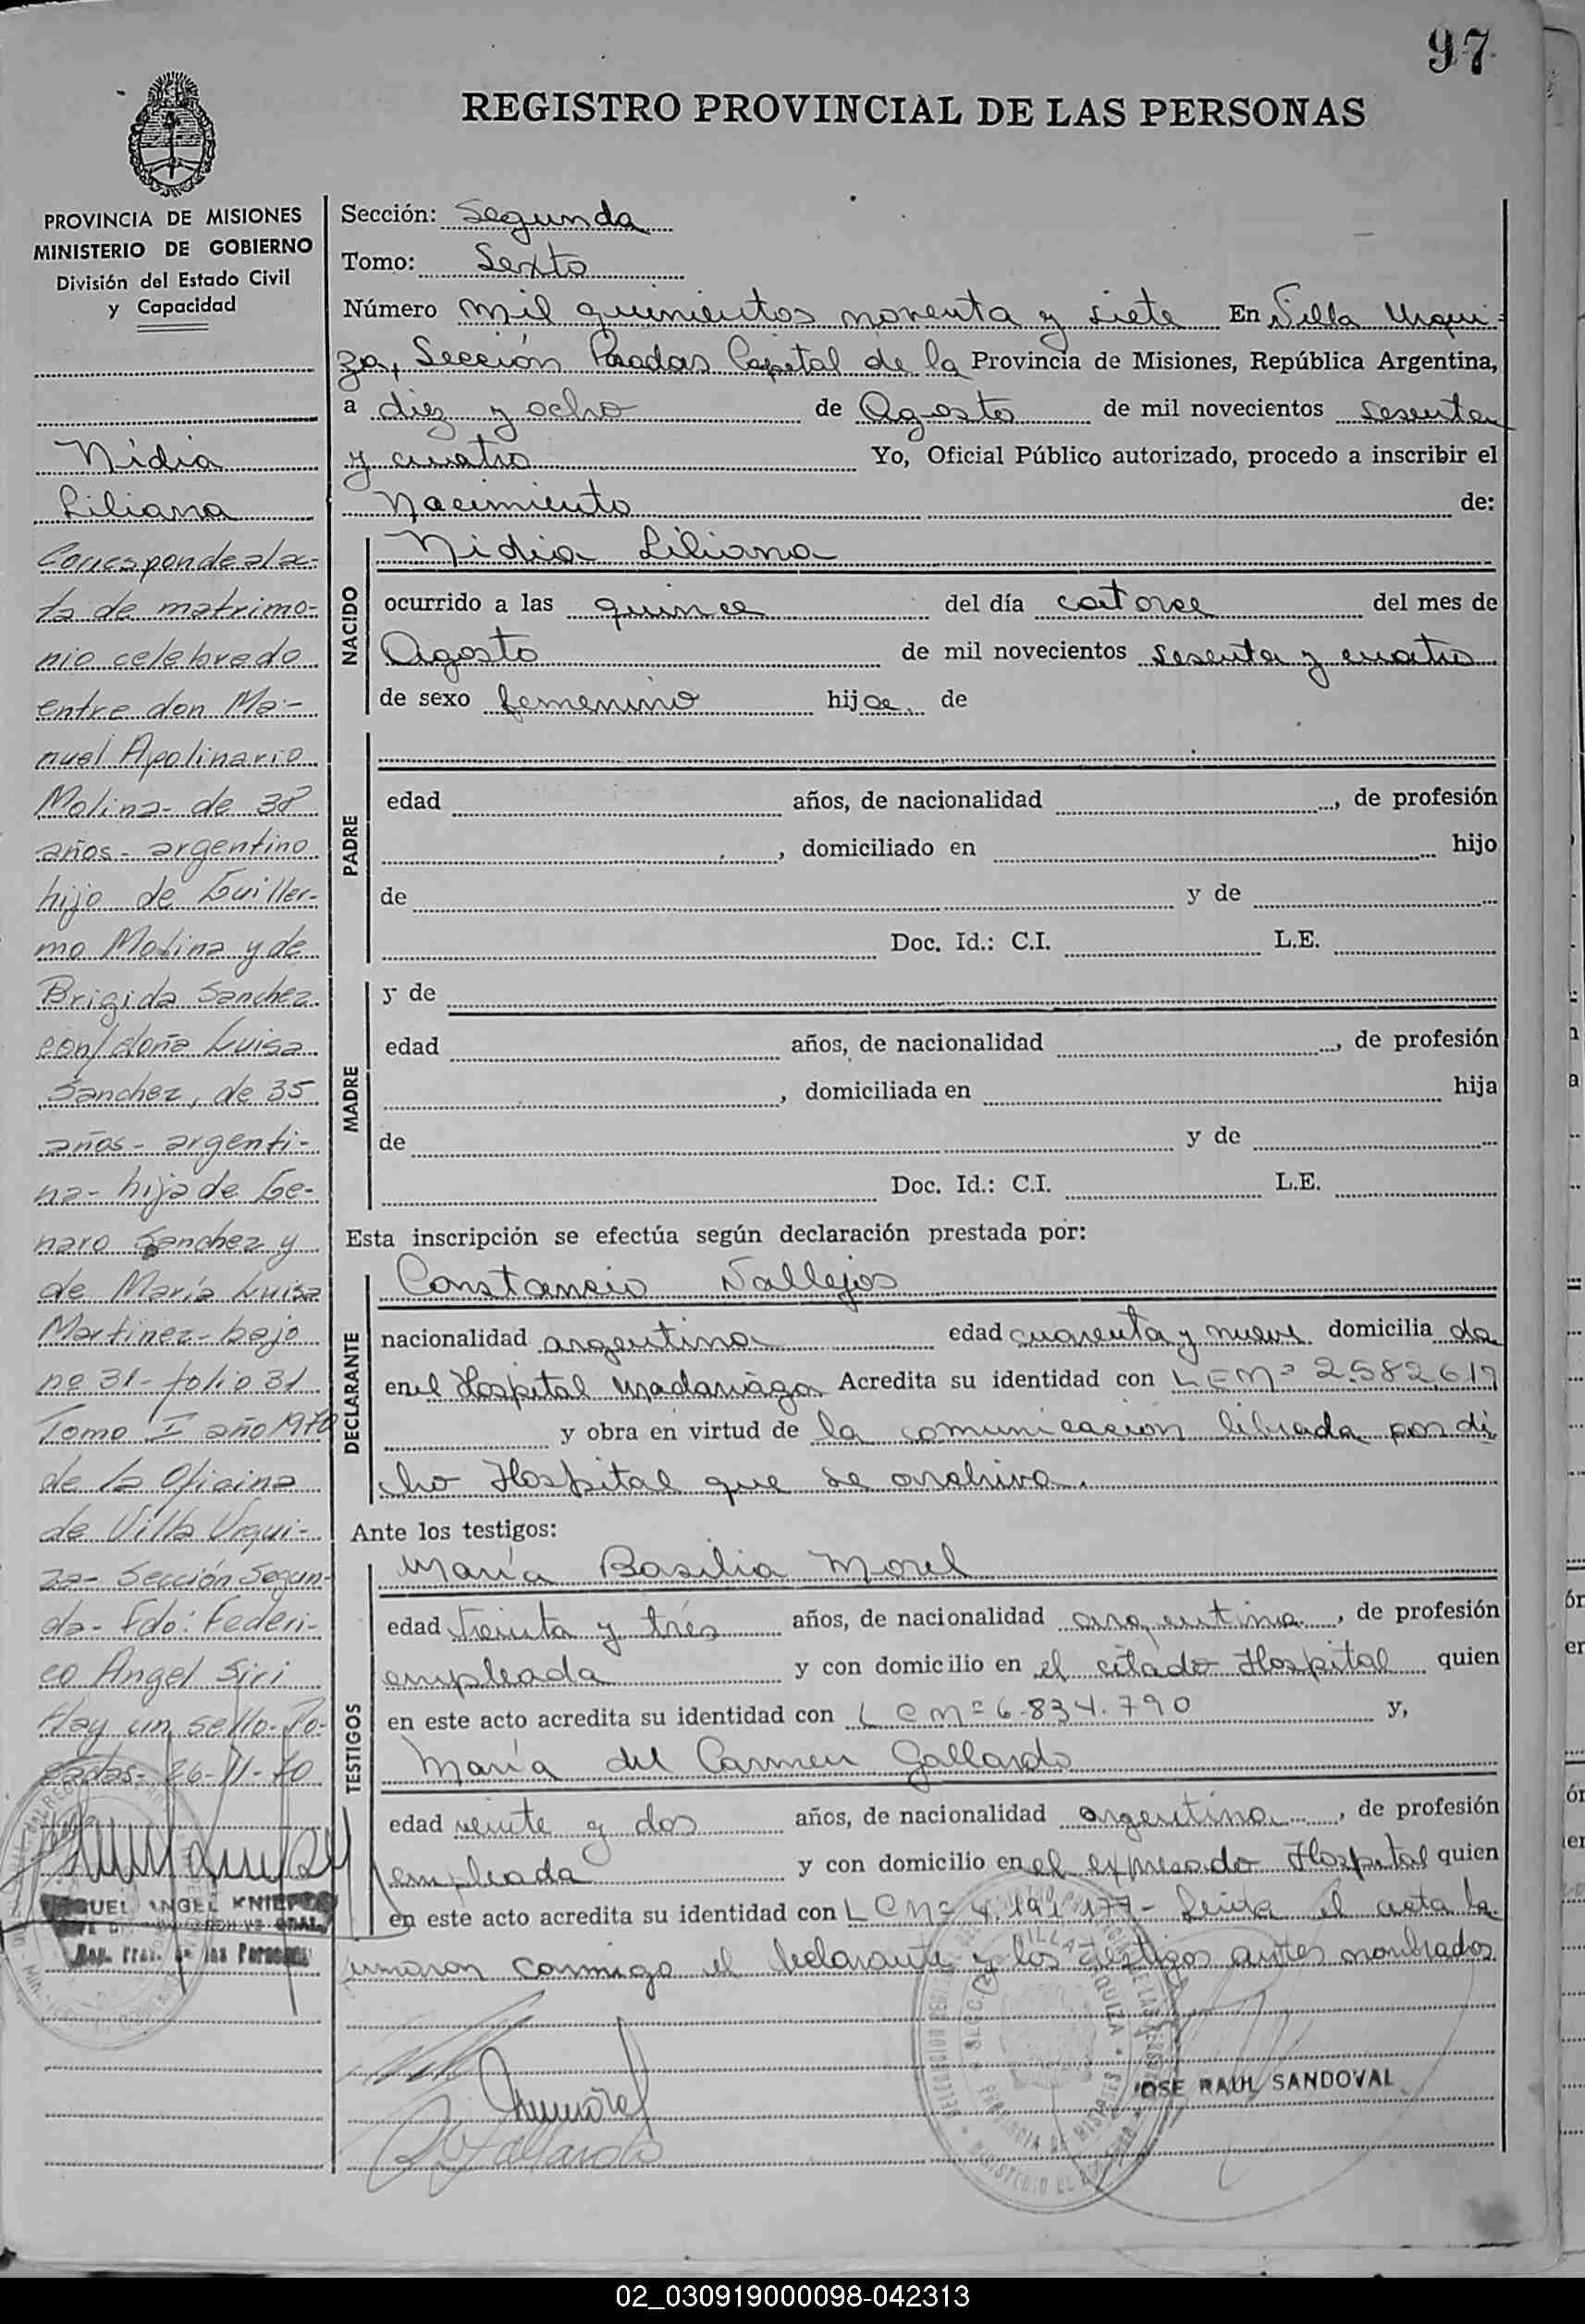 97
REGISTRO PROVINCIAL DE LAS PERSONAS
PROVINCIA DE MISIONES
MINISTERIO DE GOBIERNO
División del Estado Civil
y Capacidad
Nidia
Liliana
Corresponde al ac-
ta de matrimo-
nio celebrado
entre don Ma-
nuel Apolinario
Molina- de 38
años- argentino
hijo de Guiller-
mo Molina y de
Brigida Sanchez
con/ doña Luisa
Sanchez, de 35
años- argenti-
na- hija de Ge-
naro Sanchez y
de María Luisa
Martinez- bajo
no 31- folio 31
Tomo I año 1970
de la Oficina
de Villa Urqui-
za- Sección Segun-
da- Fdo: Federi-
co Angel Siri
Hay un sello- Po-
sadas- 26-11-70
ANGEL
Reg. Prov. de las Personas
Sección: Segunda
Tomo: Sexto
Número mil quinientos noventa y siete En Villa Urqui-
za, Sección Posadas Capital de la Provincia de Misiones, República Argentina,
a diez y ocho de Agosto de mil novecientos sesenta
y cuatro Yo, Oficial Público autorizado, procedo a inscribir el
Nacimiento de:
NACIDO
Nidia Liliana
ocurrido a las quince del día catorce del mes de
Agosto de mil novecientos sesenta y cuatro
de sexo femenino hija de
PADRE
edad años, de nacionalidad , de profesión
, domiciliado en hijo
de y de
Doc. Id.: C.I. L.E.
MADRE
y de
edad años, de nacionalidad , de profesión
, domiciliada en hija
de y de
Doc. Id.: C.I. L.E.
Esta inscripción se efectúa según declaración prestada por:
DECLARANTE
Constancio Vallejos
nacionalidad argentina edad cuarenta y nueve domicilia da
en el Hospital Madariaga Acredita su identidad con L E Nº 2.582.619
y obra en virtud de la comunicación librada por di
cho Hospital que se archiva.
Ante los testigos:
TESTIGOS
María Basilia Morel
edad treinta y trés años, de nacionalidad argentina, de profesión
empleada y con domicilio en el citado Hospital quien
en este acto acredita su identidad con L C Nº 6.834.790 y,
María del Carmen Gallardo
edad veinte y dos años, de nacionalidad argentina, de profesión
empleada y con domicilio en el expresado Hospital quien
en este acto acredita su identidad con L C Nº 4.191.177- Leída el acta la
firmaron conmigo el declarante y los testigos antes nombrados.
VILLA URQUIZA
PROVINCIA DE MISIONES
JOSE RAUL SANDOVAL
02_030919000098-042313